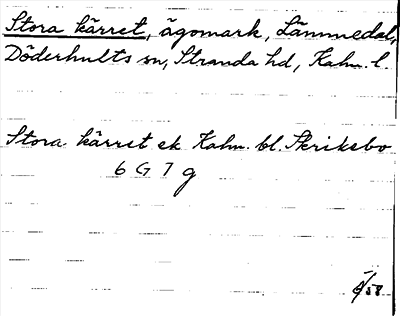 Stora kärret, ägomark, Lämmedal,
Döderhults sn, Stranda hd, Kalm. l.
Stora kärret ek Kalm. bl. Skriksbo
6 G 7 g
/58